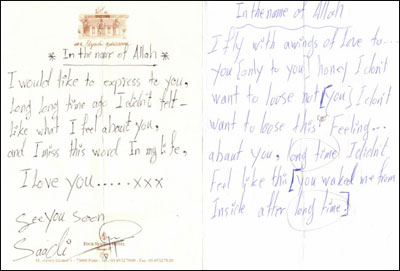 * In the name of Allah *
I would like to express to you,
long long time ago I didn't felt -
like what I feel about you,
and I miss this word In my life,
I love you ..... xxx
See you soon
Saadi
In the name of Allah
I fly with awings of love to...
you [only to you] honey I don't
want to loose not [you] I don't
want to loose this Feeling...
about you, long time I didn't
Feel like this [you waked me from
Inside after long time]